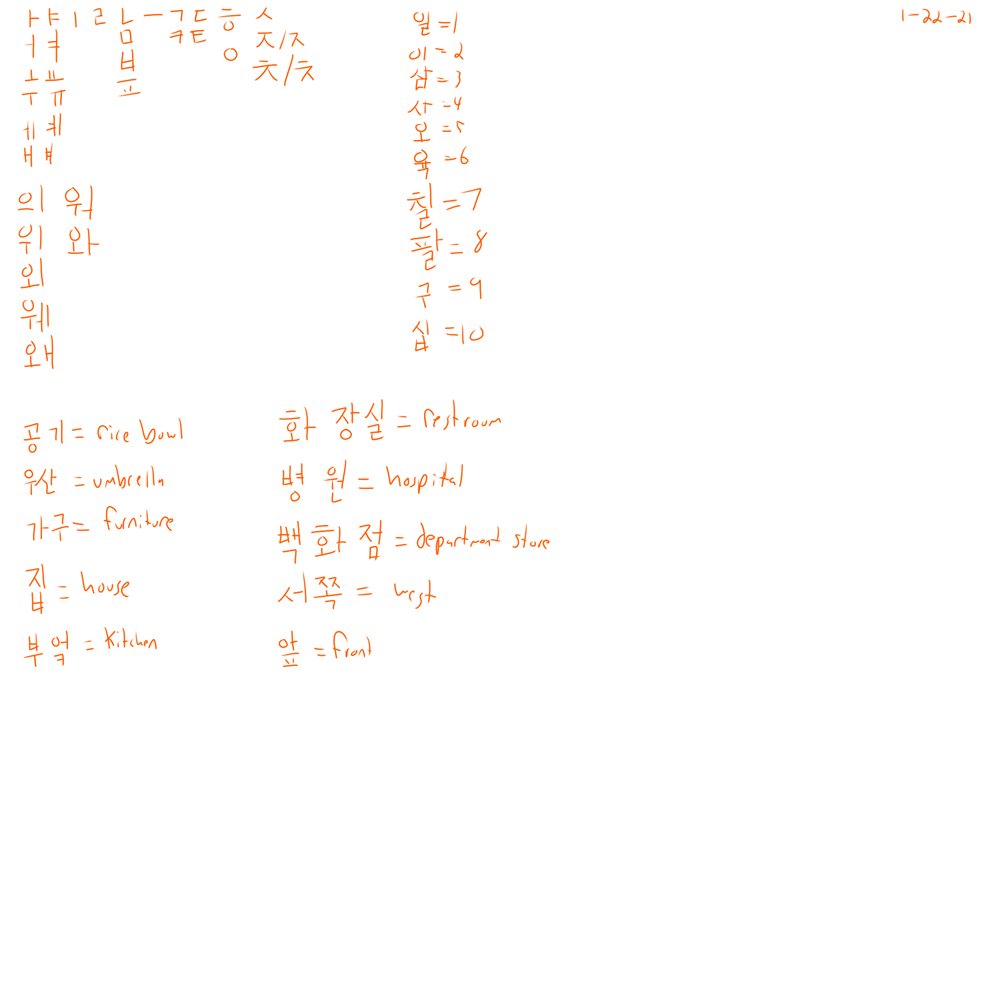 1-22-21
ㅏ ㅑ ㅣ ㄹ ㄴ ㅡ ㄱ ㄷ ㅎ ㅅ
ㅓ ㅕ ㅁ ㅋ ㅌ ㅇ ㅈ/ㅈ
ㅗ ㅛ ㅂ ㅊ/ㅊ
ㅜ ㅠ ㅍ
ㅔ ㅖ
ㅐ ㅒ
의 워
위 와
외
웨
왜
일=1
이=2
삼=3
사=4
오=5
육=6
칠=7
팔=8
구=9
십=10
공기=rice bowl
우산=umbrella
가구=furniture
집=house
부엌=Kitchen
화장실=restroom
병원=hospital
백화점=department store
서쪽=west
앞=front